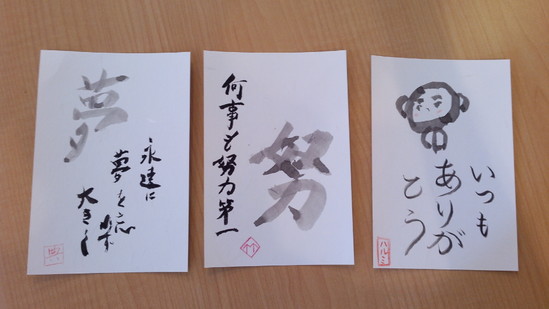 夢
永遠に
夢を忘れず
大きく
努
何事も努力第一
いつも
ありが
とう
ハルミ